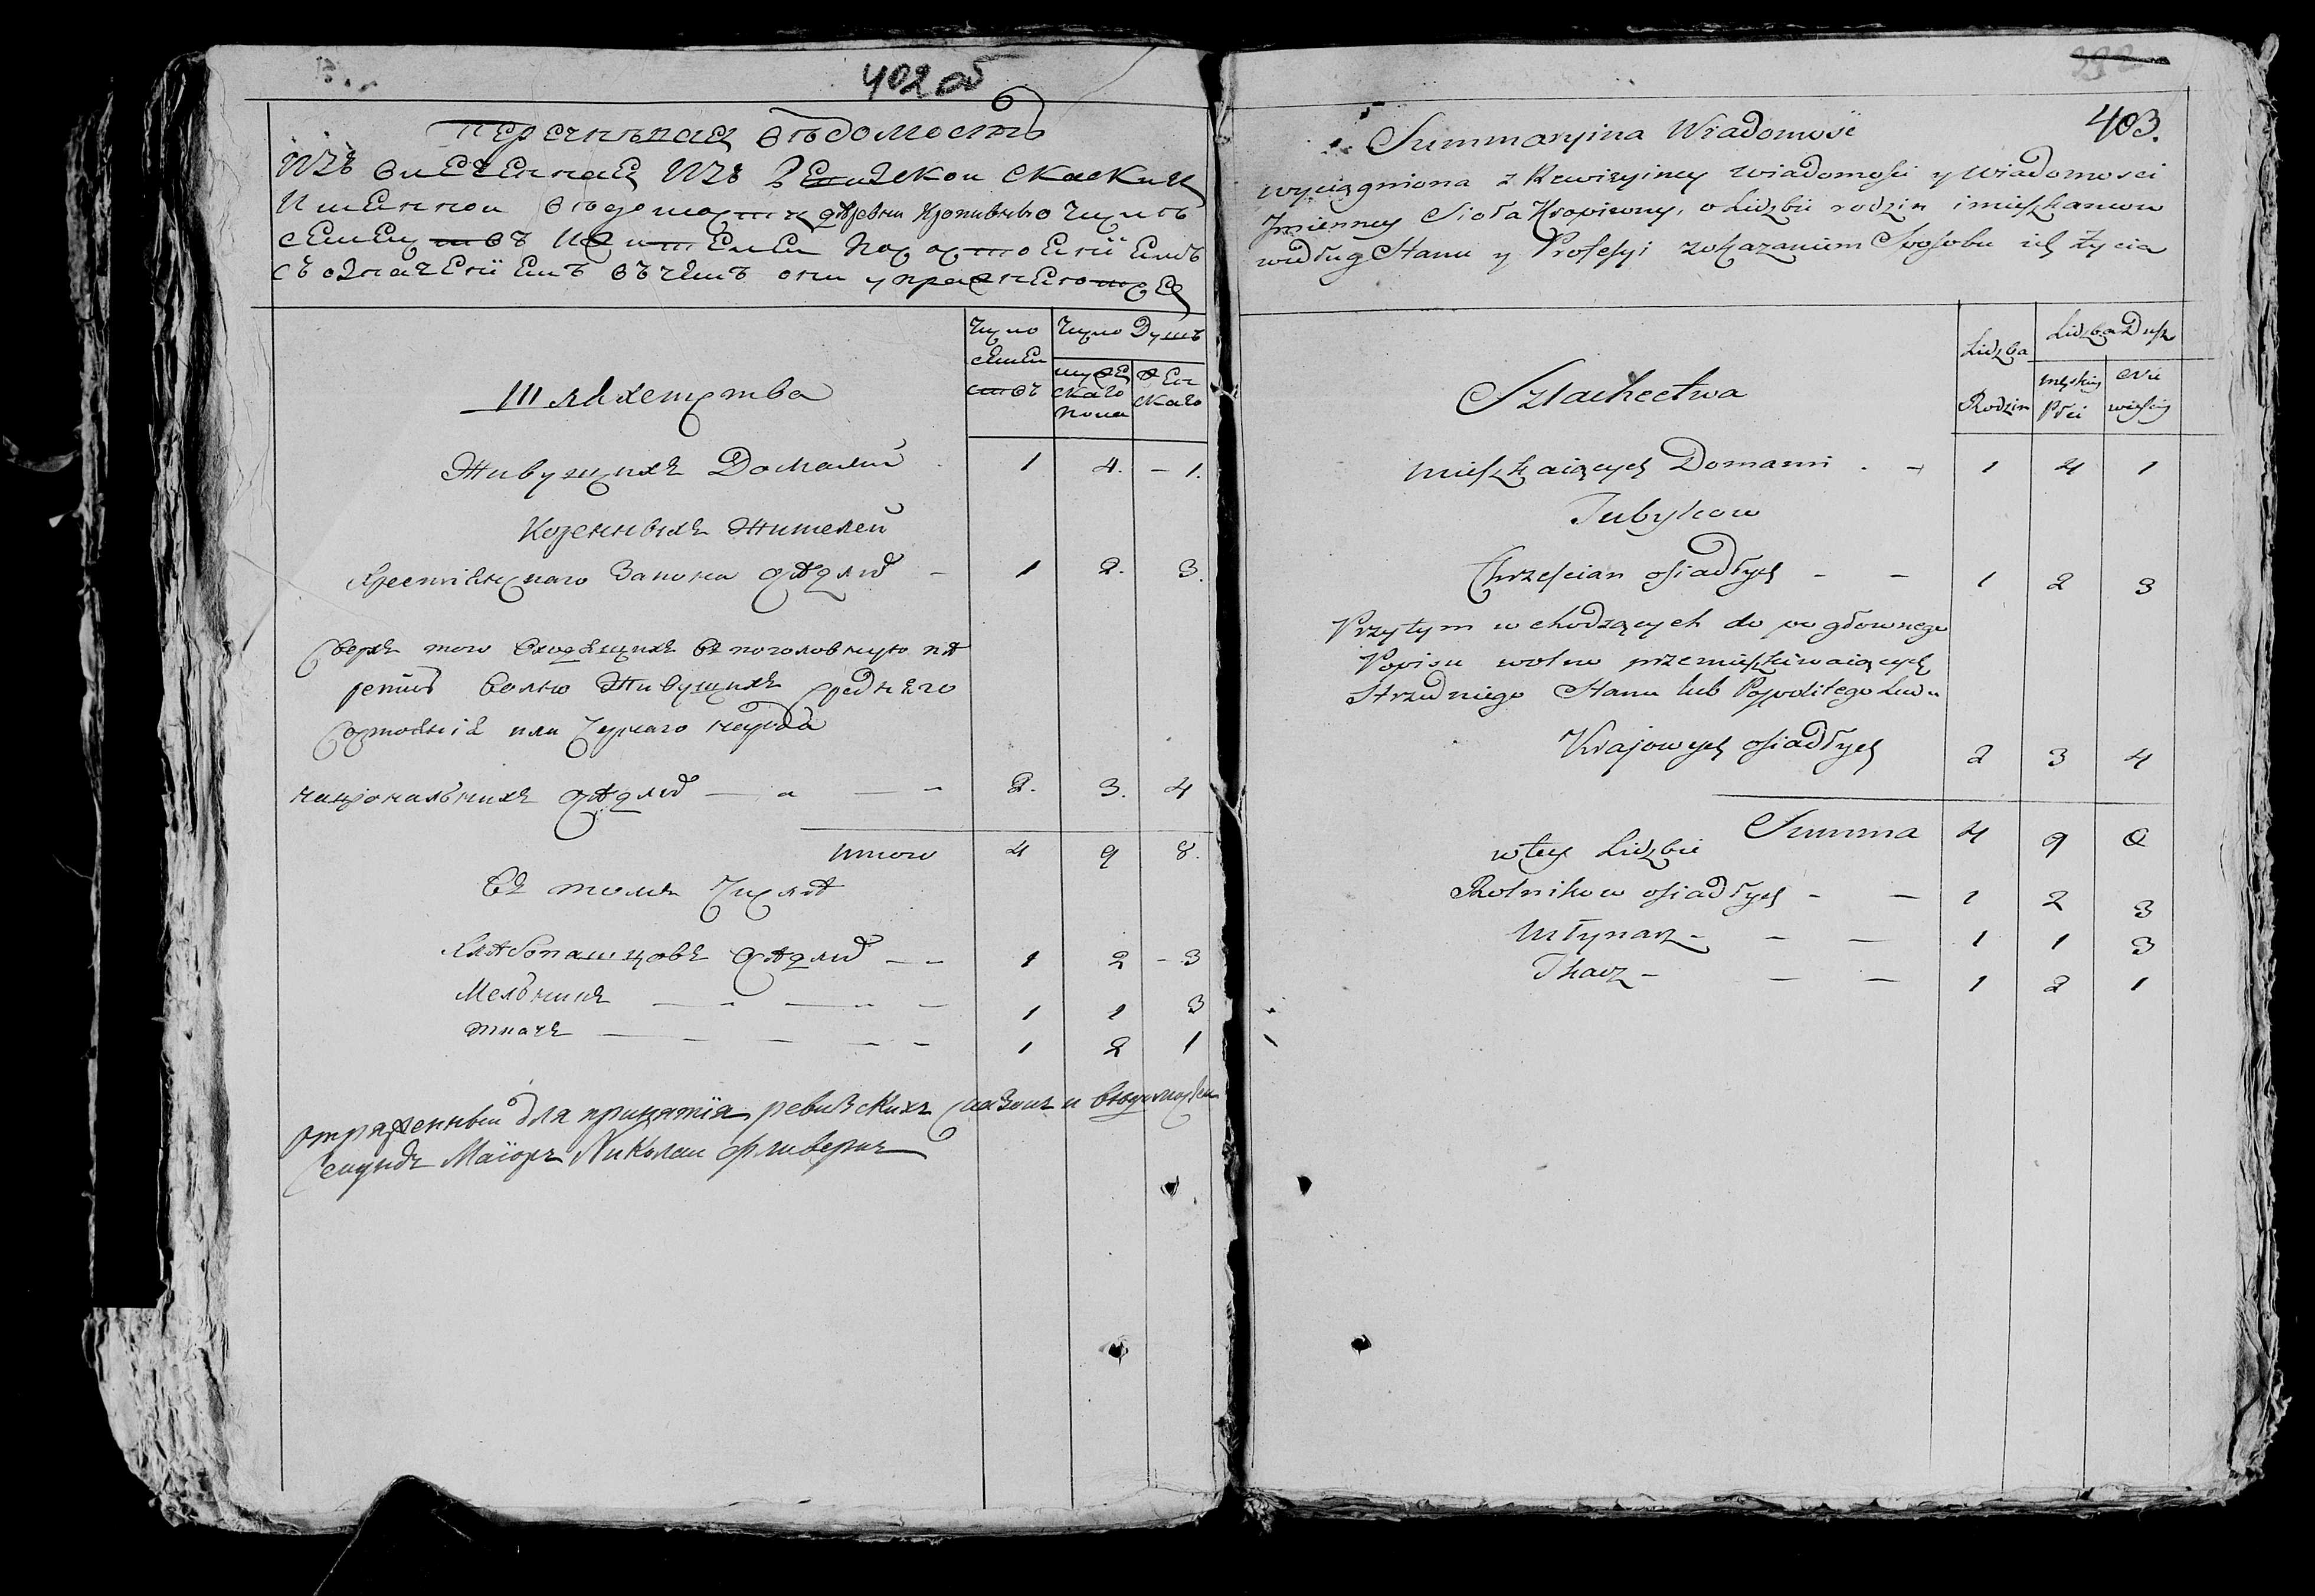 402 об
Перечневая вѣдомость
изъ влеченная изъ Ревизской скаски и
именной вѣдомости деревни Кропивны о числѣ
семействъ и жителей по состоянїемъ
съ означенїемъ въ чемъ они упражняются
Число семействъ
Число Душъ
мужескаго пола
женскаго
Шляхетства
Живущихъ Домами 1 4. – 1.
Коренныхъ Жителей
Хрестіянскаго Закона осѣдлыхъ – 1 2. 3.
Сверхъ того входящихъ въ поголовную пе
репись вольно Живущихъ Средняго
Состоянія или Чернаго народа
націоналныхъ осѣдлыхъ — — — 2. 3. 4
итого 4 9 8.
Въ томъ Числѣ
Хлѣбопашцовъ осѣдлыхъ – – 1 2 – 3
Мельникъ — — — — 1 1 3
ткачъ — — — — 1 2 1
отряженный для принятїя ревизскихъ сказокъ и вѣдомостей
Секундъ Маїоръ Николай
403.
Summaryina Wiadomość
wyciągniona z Rewizyiney wiadomości y wiadomości
Jmienney Sioła Kropiwny, o Lidzbie rodzin i mieszkancow
według Stanu y Profesyi z okazaniem Sposobu ich życia
Lidzba Rodzin
Lidzba Dusz
męskiey Płci
Niewieściey
Szlachectwa
mieszkaiących Domami . – 1 4 1
Tubylcow
Chrześcian osiadłych – – 1 2 3
Przytym wchodzących do pogłownego
Popisu wolno przemieszkiwaiących
Strzedniego Stanu lub Pospolitego Ludu
Krajowych osiadłych 2 3 4
Summa 4 9 8
w tey Lidzbie
Rolnikow osiadłych – – 1 2 3
Młynarz – – – 1 1 3
Tkacz – – – 1 2 1